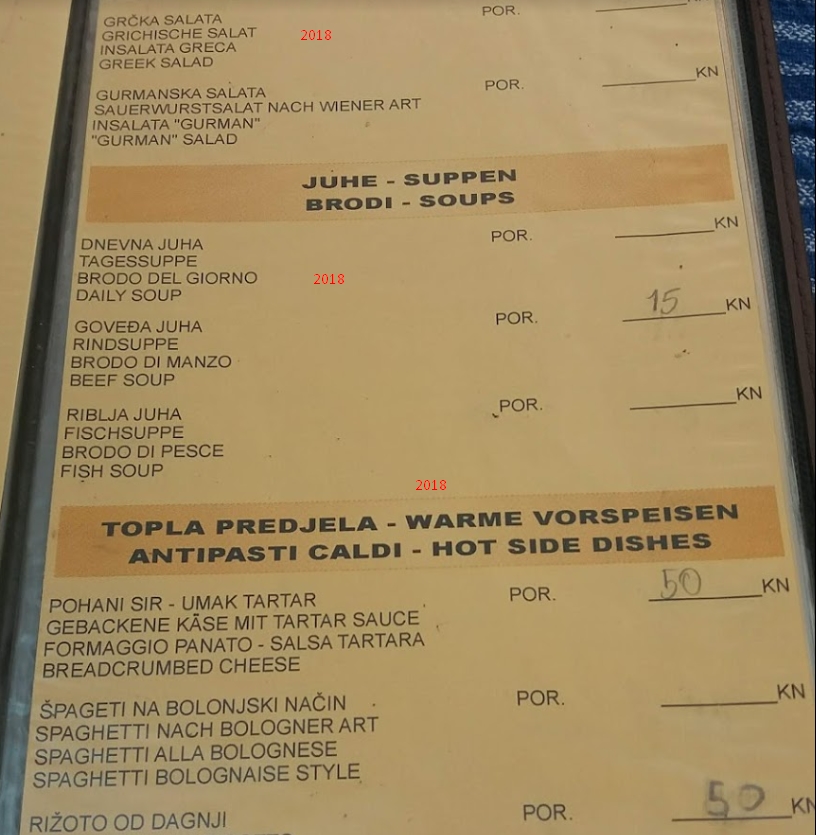 GRČKA SALATA POR.
GRICHISCHE SALAT 2018
INSALATA GRECA
GREEK SALAD
GURMANSKA SALATA POR. KN
SAUERWURSTSALAT NACH WIENER ART
INSALATA "GURMAN"
"GURMAN" SALAD
JUHE - SUPPEN
BRODI - SOUPS
DNEVNA JUHA POR. KN
TAGESSUPPE
BRODO DEL GIORNO 2018
DAILY SOUP
GOVEĐA JUHA POR. 15 KN
RINDSUPPE
BRODO DI MANZO
BEEF SOUP
RIBLJA JUHA POR. KN
FISCHSUPPE
BRODO DI PESCE
FISH SOUP
2018
TOPLA PREDJELA - WARME VORSPEISEN
ANTIPASTI CALDI - HOT SIDE DISHES
POHANI SIR - UMAK TARTAR POR. 50 KN
GEBACKENE KÄSE MIT TARTAR SAUCE
FORMAGGIO PANATO - SALSA TARTARA
BREADCRUMBED CHEESE
ŠPAGETI NA BOLONJSKI NAČIN POR. KN
SPAGHETTI NACH BOLOGNER ART
SPAGHETTI ALLA BOLOGNESE
SPAGHETTI BOLOGNAISE STYLE
RIŽOTO OD DAGNJI POR. 50 KN